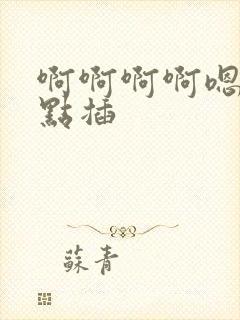 啊啊啊啊嗯
點插
蘇青